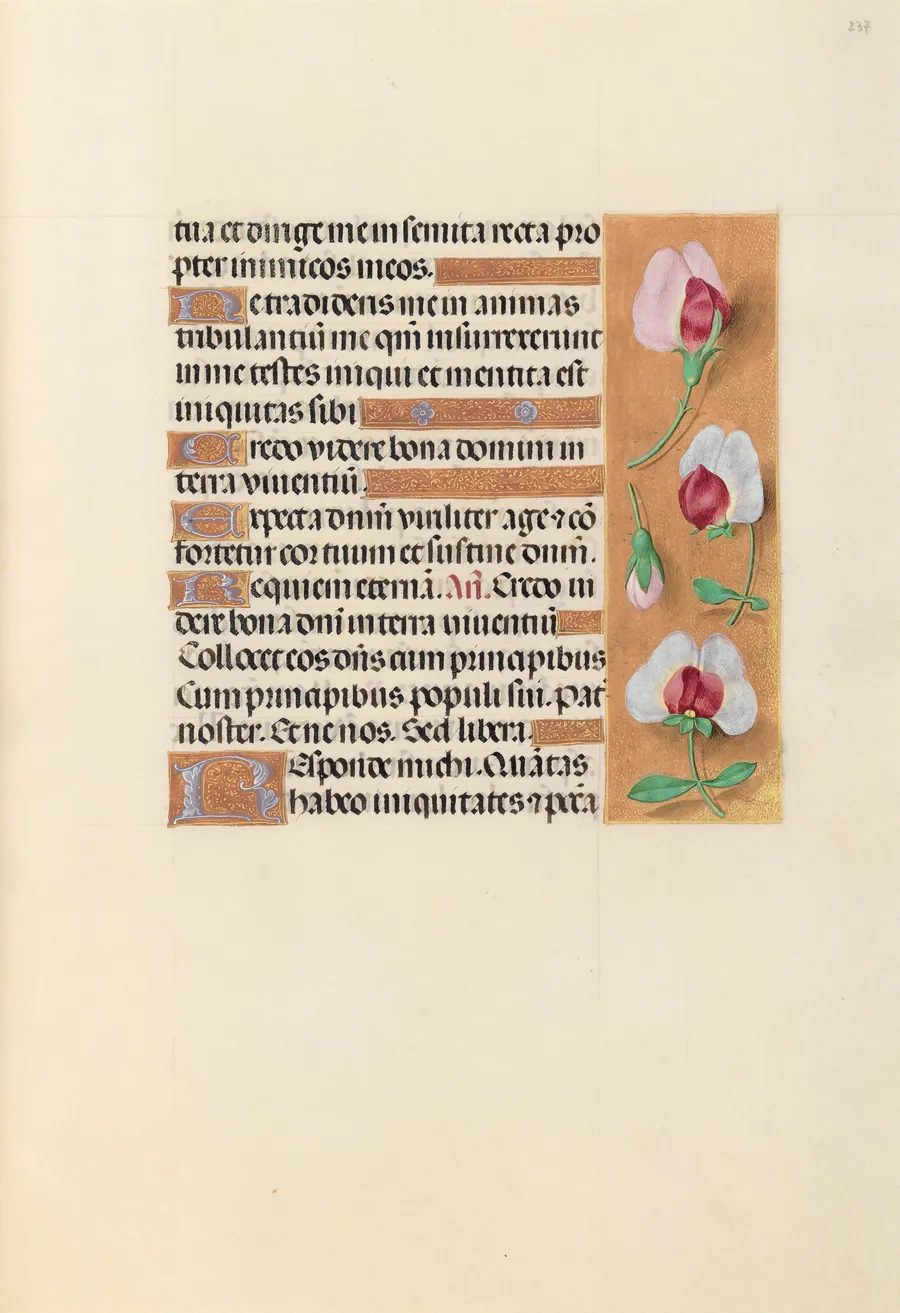 237
tua et dirige me in semita recta pro
pter inimicos meos.
Ne tradideris me in animas
tribulantiū me qm̄ insurrexerunt
in me testes iniqui et mentita est
iniquitas sibi
Credo videre bona domini in
terra viuentiū.
Expecta dnm̄ viriliter age ⁊ cō
fortetur cor tuum et sustine dnm̄.
Requiem eternā. An̄. Credo vi
dere bona dnī in terra viuentiū
Collocet eos dn̄s cum principibus
Cum principibus populi sui. Pat̄
noster. Et ne nos. Sed libera.
REsponde michi. Quātas
habeo iniquitates ⁊ pccā